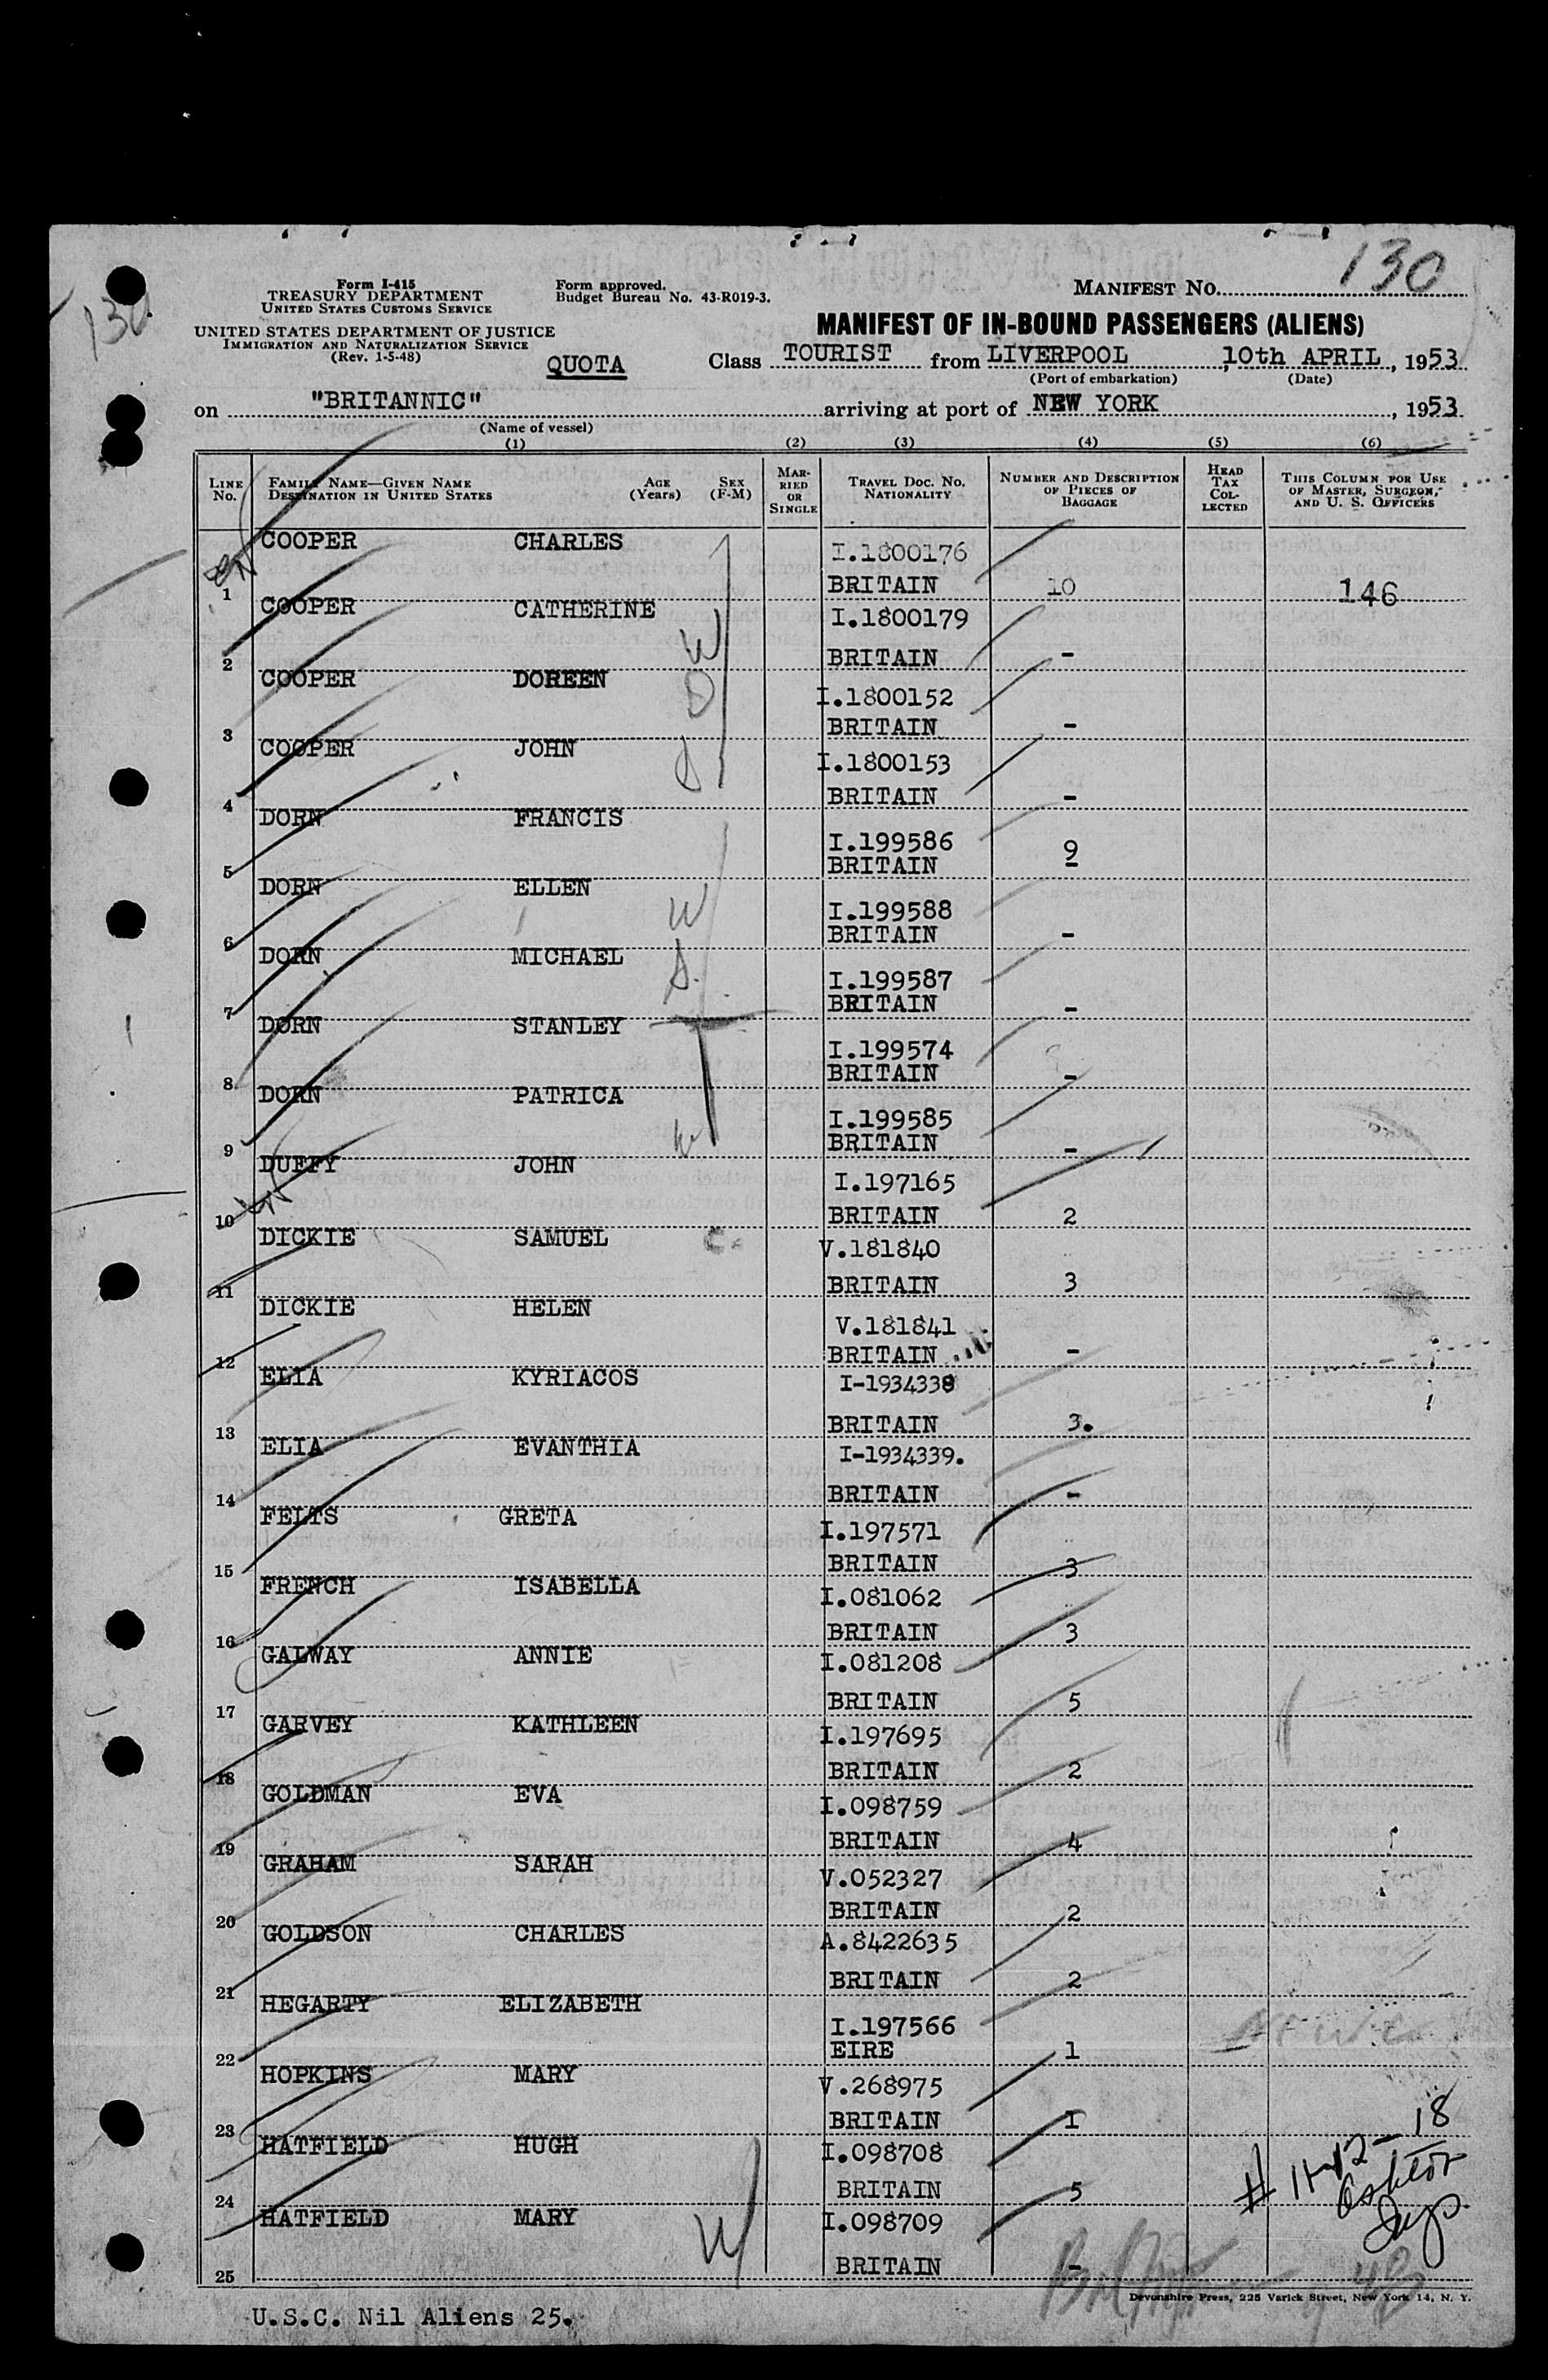 130
130
Form I-415
TREASURY DEPARTMENT
UNITED STATES CUSTOMS SERVICE
UNITED STATES DEPARTMENT OF JUSTICE
IMMIGRATION AND NATURALIZATION SERVICE
(Rev. 1-5-48)
Form approved.
Budget Bureau No. 43-R019-3.
MANIFEST NO.
MANIFEST OF IN-BOUND PASSENGERS (ALIENS)
QUOTA Class TOURIST from LIVERPOOL, 10th APRIL, 1953
(Port of embarkation) (Date)
on "BRITANNIC" arriving at port of NEW YORK, 1953
(Name of vessel)
(1) (2) (3) (4) (5) (6)
LINE No. FAMILY NAME—GIVEN NAME DESTINATION IN UNITED STATES AGE (Years) SEX (F-M) MARRIED OR SINGLE TRAVEL DOC. NO. NATIONALITY NUMBER AND DESCRIPTION OF PIECES OF BAGGAGE HEAD TAX COLLECTED THIS COLUMN FOR USE OF MASTER, SURGEON, AND U. S. OFFICERS
COOPER CHARLES I.1800176
1 BRITAIN 10 146
COOPER CATHERINE W I.1800179
2 BRITAIN -
COOPER DOREEN D I.1800152
3 BRITAIN -
COOPER JOHN S I.1800153
4 BRITAIN -
DORN FRANCIS I.199586
5 BRITAIN 9
DORN ELLEN W I.199588
6 BRITAIN -
DORN MICHAEL S. I.199587
7 BRITAIN -
DORN STANLEY I.199574
8 BRITAIN -
DORN PATRICA W I.199585
9 BRITAIN -
DUFFY JOHN I.197165
10 BRITAIN 2
DICKIE SAMUEL V.181840
11 BRITAIN 3
DICKIE HELEN V.181841
12 BRITAIN -
ELIA KYRIACOS I-1934338
13 BRITAIN 3.
ELIA EVANTHIA I-1934339.
14 BRITAIN -
FELTS GRETA I.197571
15 BRITAIN 3
FRENCH ISABELLA I.081062
16 BRITAIN 3
GALWAY ANNIE I.081208
17 BRITAIN 5
GARVEY KATHLEEN I.197695
18 BRITAIN 2
GOLDMAN EVA I.098759
19 BRITAIN 4
GRAHAM SARAH V.052327
20 BRITAIN 2
GOLDSON CHARLES A.8422635
21 BRITAIN 2
HEGARTY ELIZABETH I.197566
22 EIRE 1
HOPKINS MARY V.268975
23 BRITAIN I
HATFIELD HUGH I.098708
24 BRITAIN 5
HATFIELD MARY W I.098709
25 BRITAIN -
# 11-12-18
Devonshire Press, 225 Varick Street, New York 14, N. Y.
U.S.C. Nil Aliens 25.